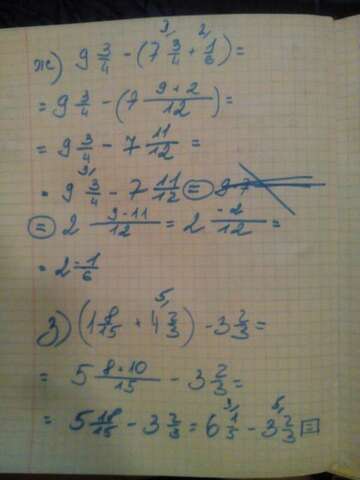 3, 2,
ж) 9 3/4 - (7 3/4 + 1/6) =
= 9 3/4 - (7 9+2/12) =
= 9 3/4 - 7 11/12 =
3,
= 9 3/4 - 7 11/12 =
= 2 9-11/12 = 2 -2/12 =
= 2 -1/6
5,
з) (1 8/15 + 4 2/3) - 3 2/3 =
= 5 8+10/15 - 3 2/3 =
3, 5,
= 5 18/15 - 3 2/3 = 6 1/5 - 3 2/3 =